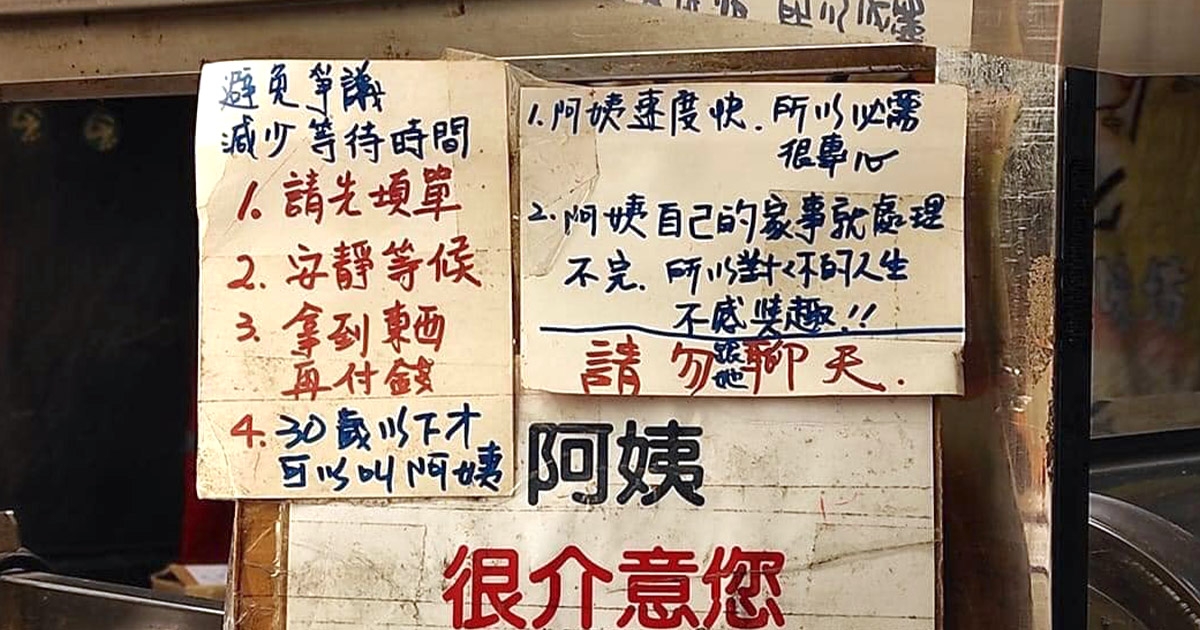 避免爭議
減少等待時間
1. 請先填單
2. 安靜等候
3. 拿到東西
再付錢
4. 30歲以下才
可以叫阿姨
1. 阿姨速度快. 所以必需
很專心
2. 阿姨自己的家事就處理
不完. 所以對你的人生
不感興趣!!
請勿跟她聊天.
阿姨
很介意您